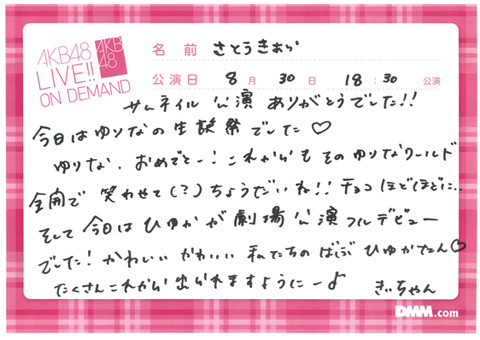 AKB48
LIVE!!
ON DEMAND
AKB
48
名前 さとうきあら
公演日 8月 30日 18:30 公演
サムネイル公演 ありがとうでした!!
今日はゆりなの生誕祭でした♡
ゆりな、おめでとー!これからもそのゆりなワールド
全開で 笑わせて(?)ちょうだいね!!チョコほどほどに..
そして今日はひゆかが劇場公演フルデビュー
でした!かわいいかわいい私たちのばぶひゆかたん♡
たくさんこれから出られますようにー♪
きぃちゃん
DMM.com